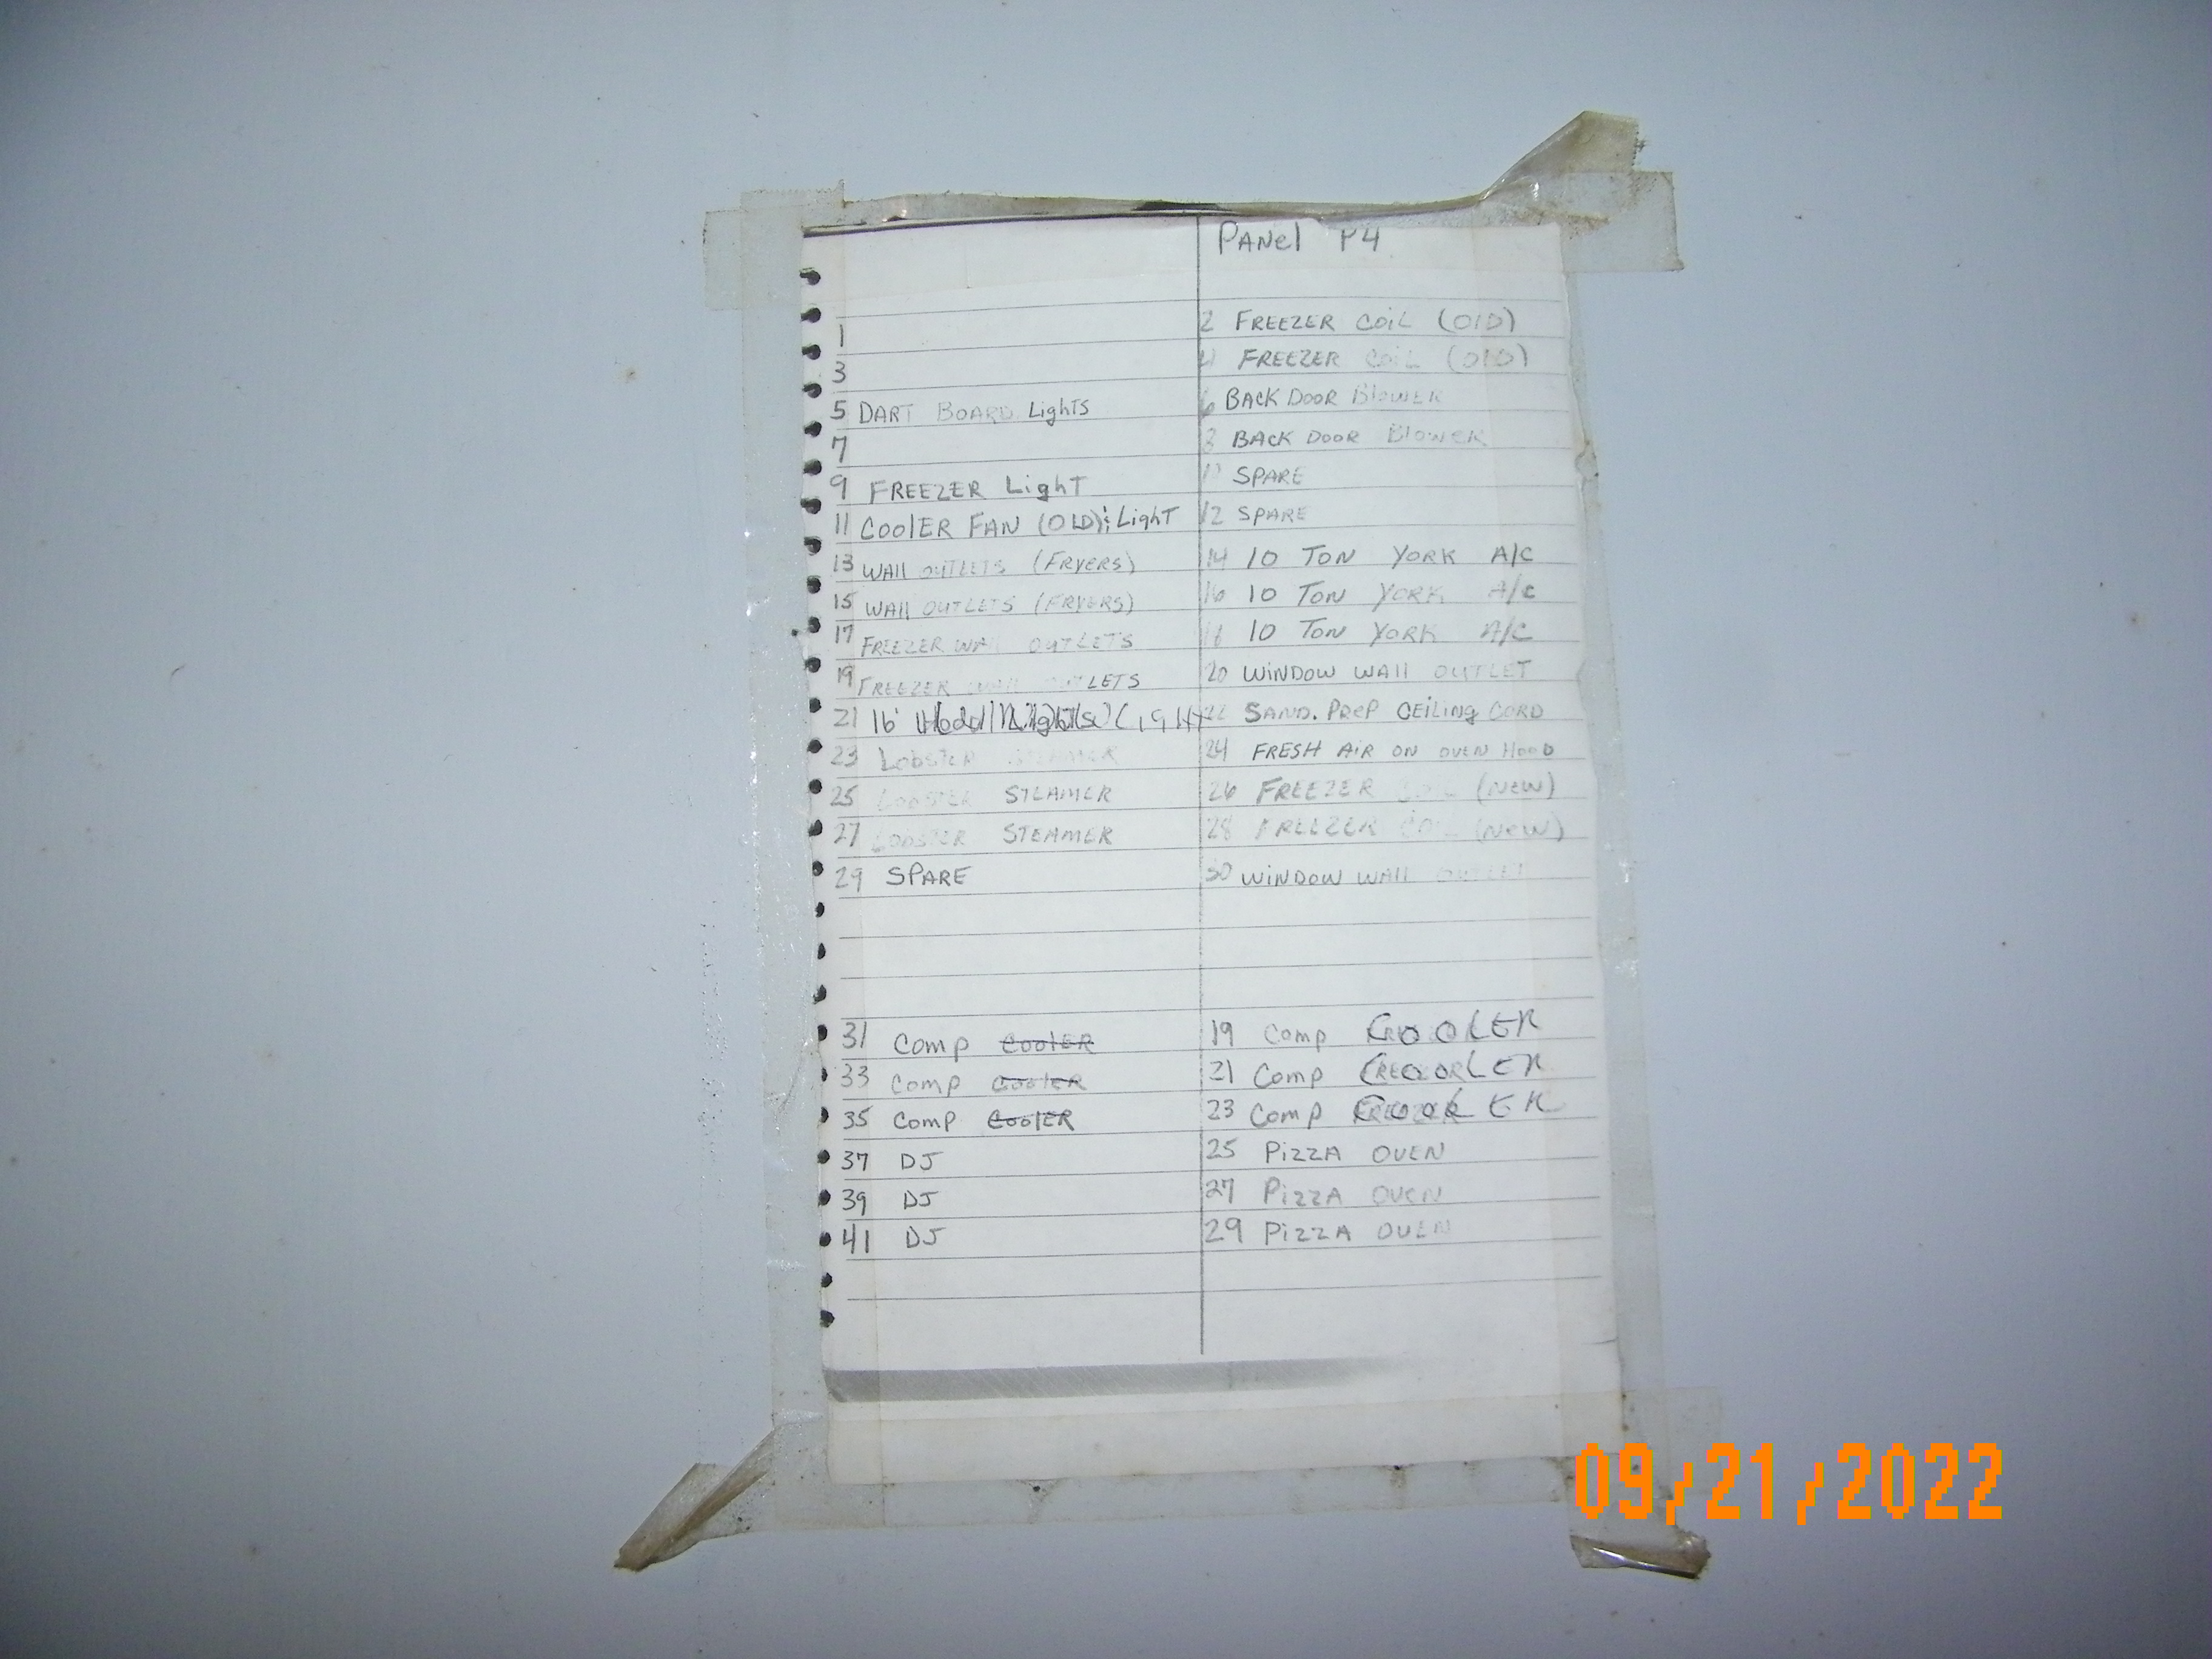 PANEL P4
1
2 FREEZER COIL (OLD)
3
4 FREEZER COIL (OLD)
5 DART BOARD Lights
6 BACK DOOR Blower
7
8 BACK DOOR Blower
9 FREEZER Light
10 SPARE
11 COOLER FAN (OLD) & Light
12 SPARE
13 WALL OUTLETS (FRYERS)
14 10 TON YORK A/C
15 WALL OUTLETS (FRYERS)
16 10 TON YORK A/C
17 FREEZER WALL OUTLETS
18 10 TON YORK A/C
19 FREEZER WALL OUTLETS
20 WINDOW WALL OUTLET
21 16'
22 SAND. PREP CEILING CORD
23 LOBSTER STEAMER
24 FRESH AIR ON OVEN HOOD
25 LOBSTER STEAMER
26 FREEZER COIL (NEW)
27 LOBSTER STEAMER
28 FREEZER COIL (NEW)
29 SPARE
30 WINDOW WALL OUTLET
31 Comp COOLER
19 Comp COOLER
33 Comp COOLER
21 Comp COOLER
35 Comp COOLER
23 Comp COOLER
37 DJ
25 PIZZA OVEN
39 DJ
27 PIZZA OVEN
41 DJ
29 PIZZA OVEN
09/21/2022